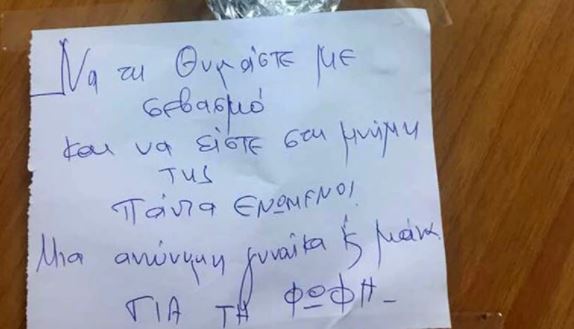 Να τη Θυμάστε με
σεβασμό
και να είστε στη μνήμη
της
Πάντα ΕΝΩΜΕΝΟΙ!
Μια ανώνυμη γυναίκα & μάνα
ΓΙΑ ΤΗ ΦΩΦΗ_